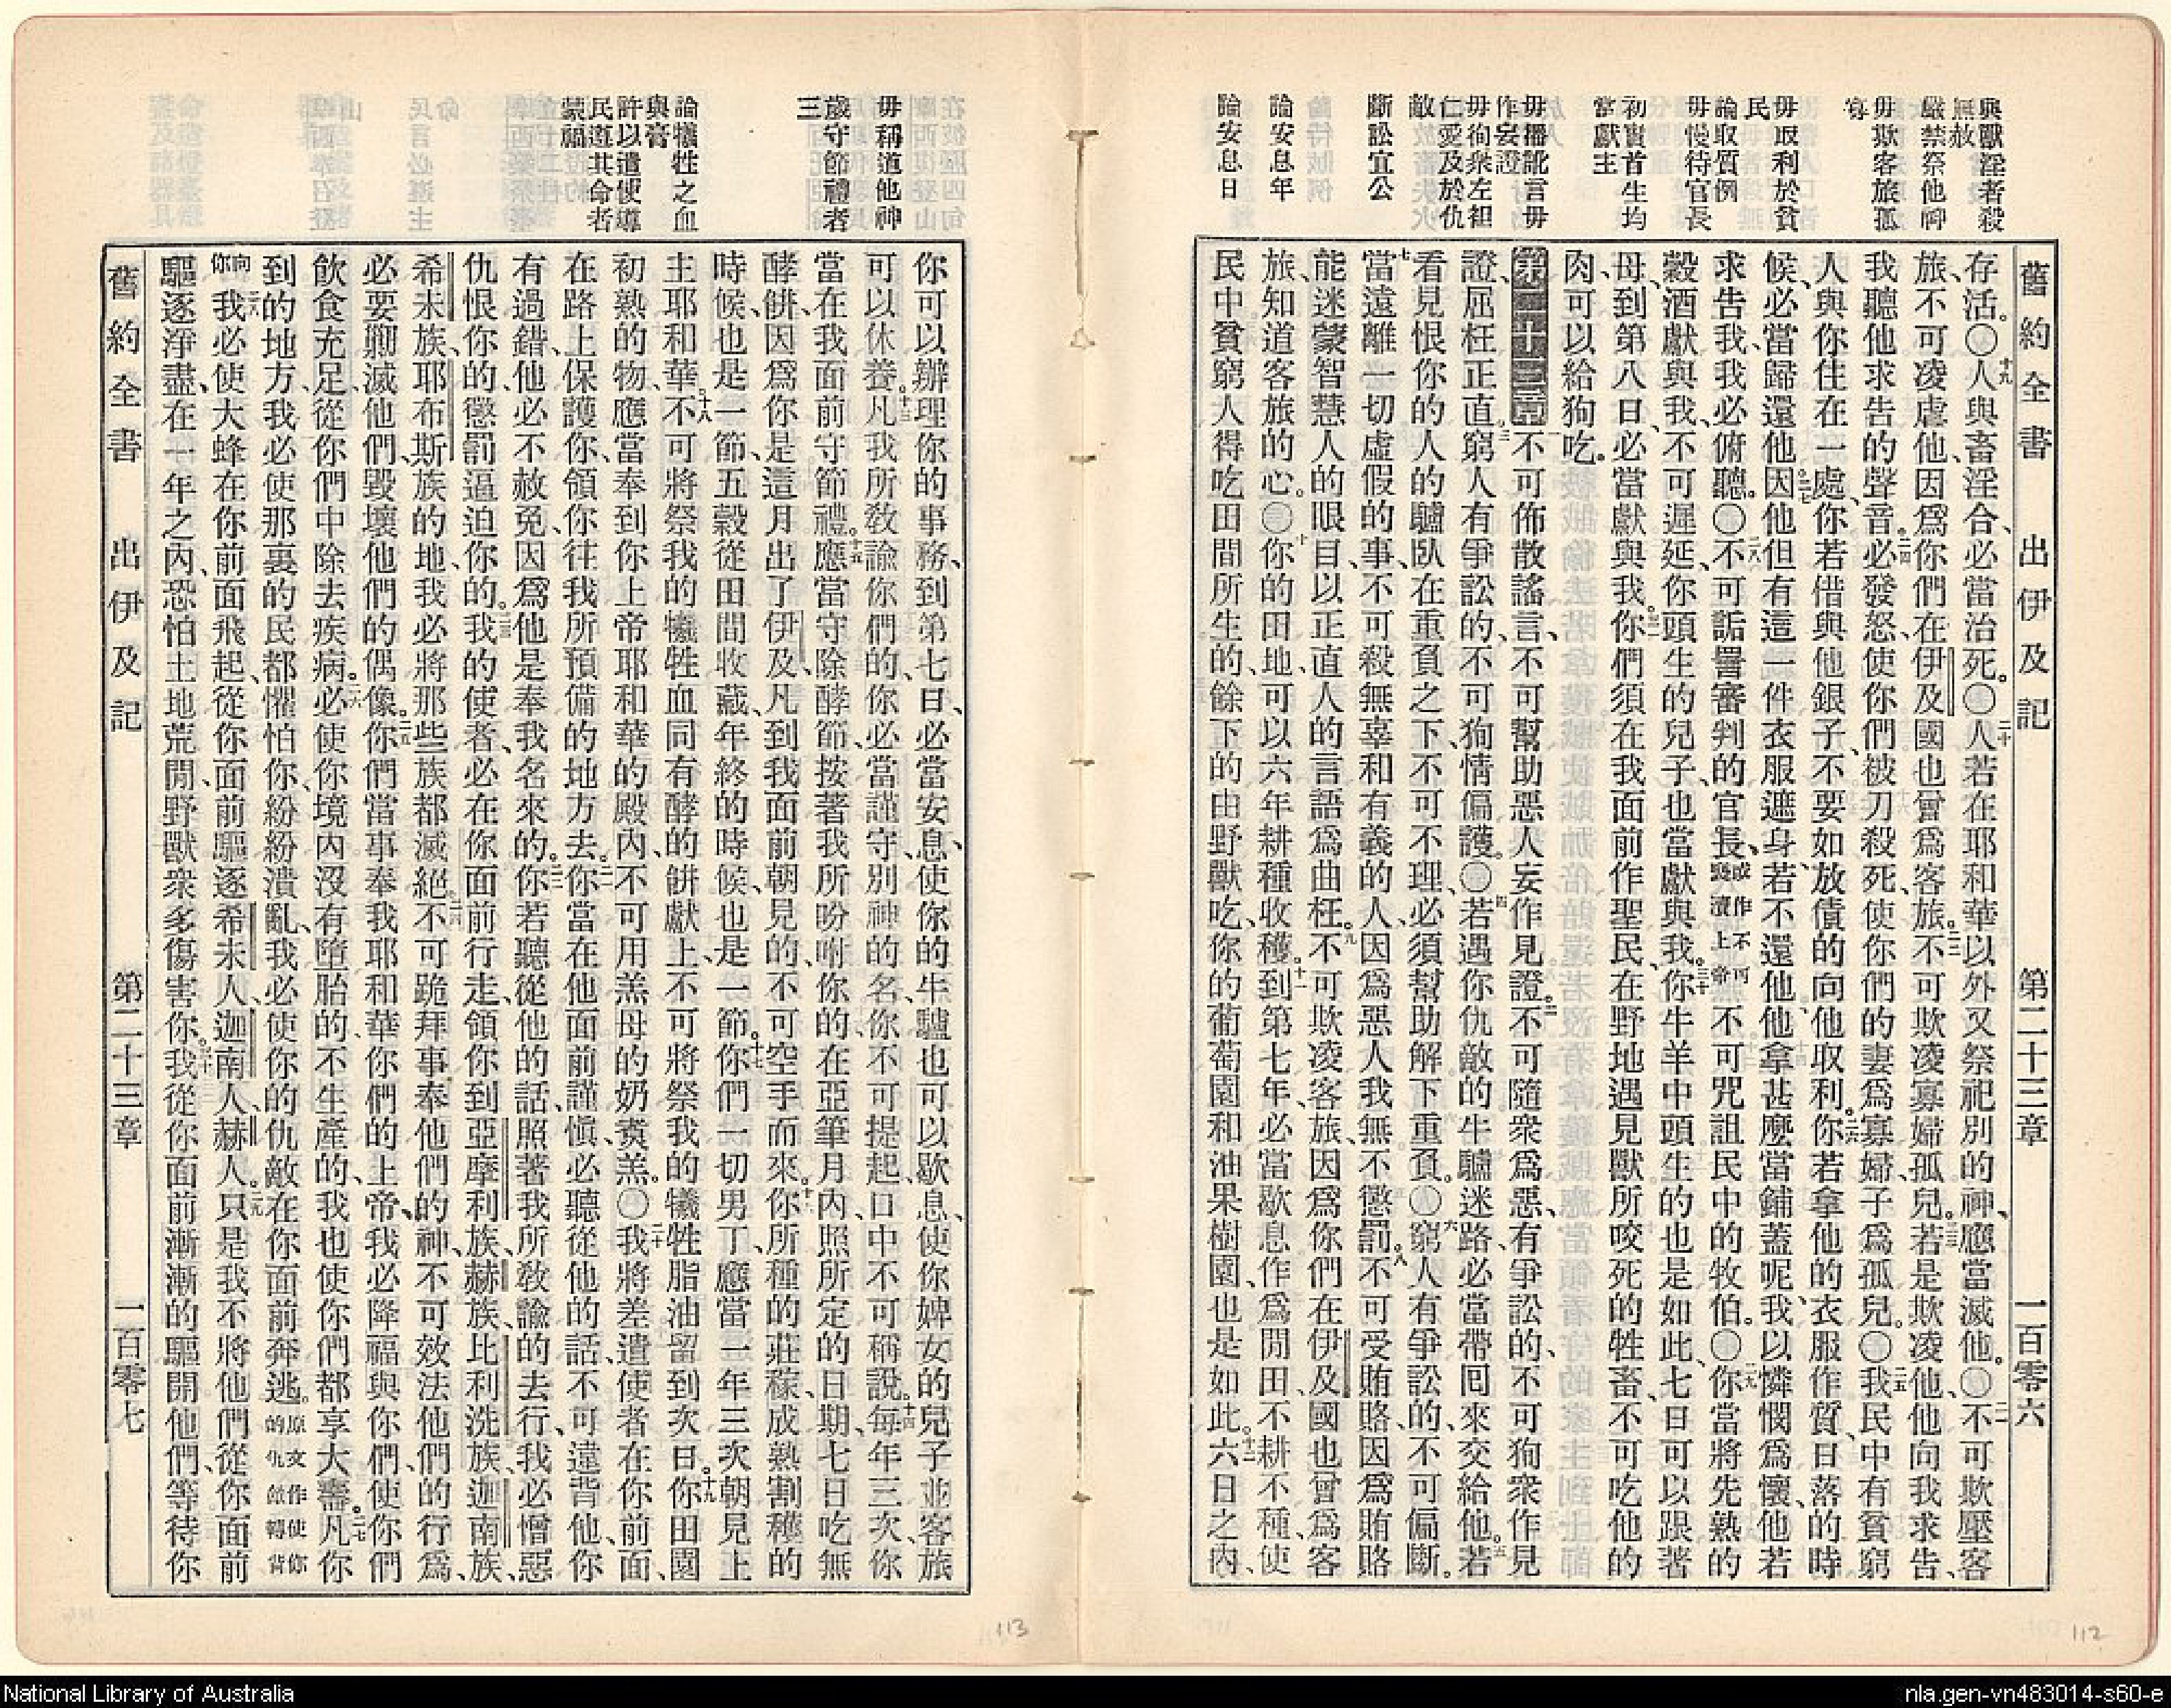 與獸淫者殺
無赦
嚴禁祭他神
毋欺客旅孤
寡
毋取利於貧
民
論取質例
毋慢待官長
初實首生均
當獻主
毋播訛言毋
作妄證
毋徇衆左袒
仁愛及於仇
敵
斷訟宜公
論安息年
論安息日
舊約全書 出伊及記 第二十三章 一百零六
存活。〇十九人與畜淫合、必當治死。〇二十人若在耶和華以外又祭祀別的神、應當滅他。〇二一不可欺壓客
旅、不可凌虐他、因爲你們在伊及國也曾爲客旅。二二不可欺凌寡婦孤兒。二三若是欺凌他、他向我求告、
我聽他求告的聲音。二四必發怒、使你們被刀殺死、使你們的妻爲寡婦、子爲孤兒。〇二五我民中有貧窮
人與你住在一處、你若借與他銀子、不要如放債的向他取利。二六你若拿他的衣服作質、日落的時
候、必當歸還他。二七因他但有這一件衣服遮身、若不還他、他拿甚麼當鋪蓋呢、我以憐憫爲懷、他若
求告我、我必俯聽。〇二八不可詬詈審判的官長、或作不可褻瀆上帝不可咒詛民中的牧伯。〇二九你當將先熟的
穀酒獻與我、不可遲延、你頭生的兒子也當獻與我。三十你牛羊中頭生的也是如此、七日可以跟著
母、到第八日、必當獻與我。三一你們須在我面前作聖民、在野地遇見獸所咬死的牲畜、不可吃他的
肉、可以給狗吃。
第二十三章一不可佈散謠言、不可幫助惡人妄作見證。二不可隨衆爲惡、有爭訟的、不可狥衆作見
證、屈枉正直。三窮人有爭訟的、不可狥情偏護。〇四若遇你仇敵的牛驢迷路、必當帶囘來交給他。五若
看見恨你的人的驢臥在重負之下、不可不理、必須幫助解下重負。〇六窮人有爭訟的、不可偏斷。
七當遠離一切虛假的事、不可殺無辜和有義的人、因爲惡人我無不懲罰。八不可受賄賂、因爲賄賂
能迷蒙智慧人的眼目、以正直人的言語爲曲枉。九不可欺凌客旅、因爲你們在伊及國也曾爲客
旅、知道客旅的心。〇十你的田地、可以六年耕種收穫。十一到第七年、必當歇息、作爲閒田、不耕不種、使
民中貧窮人得吃田間所生的、餘下的由野獸吃、你的葡萄園和油果樹園、也是如此。十二六日之內、
112
毋稱道他神
歲守節禮者
三
論犧牲之血
與膏
許以遣使導
民遵其命者
蒙福
你可以辦理你的事務、到第七日、必當安息、使你的牛驢也可以歇息、使你婢女的兒子並客旅
可以休養。十三凡我所敎諭你們的、你必當謹守、別神的名、你不可提起、口中不可稱說。十四每年三次、你
當在我面前守節禮。十五應當守除酵節、按著我所吩咐你的、在亞筆月內、照所定的日期、七日吃無
酵餅、因爲你是這月出了伊及、凡到我面前朝見的、不可空手而來。十六你所種的莊稼、成熟割穫的
時候、也是一節、五穀從田間收藏、年終的時候、也是一節。十七你們一切男丁、應當一年三次朝見上
主耶和華。十八不可將祭我的犧牲血同有酵的餅獻上、不可將祭我的犧牲脂油留到次日。十九你田園
初熟的物、應當奉到你上帝耶和華的殿內、不可用羔母的奶煑羔。〇二十我將差遣使者在你前面、
在路上保護你、領你往我所預備的地方去。二一你當在他面前謹愼、必聽從他的話、不可違背他、你
有過錯、他必不赦免、因爲他是奉我名來的。二二你若聽從他的話、照著我所敎諭的去行、我必憎惡
仇恨你的、懲罰逼迫你的。二三我的使者、必在你面前行走、領你到亞摩利族、赫族、比利洗族、迦南族、
希未族、耶布斯族的地、我必將那些族都滅絕。二四不可跪拜事奉他們的神、不可效法他們的行爲、
必要剿滅他們、毀壞他們的偶像。二五你們當事奉我耶和華你們的上帝、我必降福與你們、使你們
飲食充足、從你們中除去疾病。二六必使你境內沒有墮胎的、不生產的、我也使你們都享大壽。二七凡你
到的地方、我必使那裏的民都懼怕你、紛紛潰亂、我必使你的仇敵在你面前奔逃。原文作使你的仇敵轉背
向你二八我必使大蜂在你前面飛起、從你面前驅逐希未人、迦南人、赫人。二九只是我不將他們從你面前
驅逐淨盡、在一年之內、恐怕土地荒閒、野獸衆多傷害你。三十我從你面前漸漸的驅開他們、等待你
舊約全書 出伊及記 第二十三章 一百零七
113
National Library of Australia
nla.gen-vn483014-s60-e